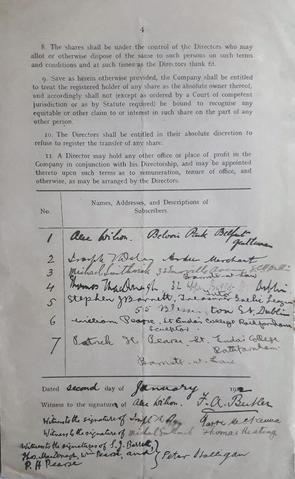 4
8. The shares shall be under the control of the Directors who may
allot or otherwise dispose of the same to such persons on such terms
and conditions and at such times as the Directors think fit.
9. Save as herein otherwise provided, the Company shall be entitled
to treat the registered holder of any share as the absolute owner thereof,
and accordingly shall not (except as ordered by a Court of competent
Jurisdiction or as by Statute required) be bound to recognise any
equitable or other claim to or interest in such share on the part of any
other person.
10. The Directors shall be entitled in their absolute discretion to
refuse to register the transfer of any share.
11. A Director may hold any other office or place of profit in the
Company in conjunction with his Directorship, and may be appointed
thereto upon such terms as to remuneration, tenure of office, and
otherwise, as may be arranged by the Directors.
No.
Names, Addresses, and Descriptions of
Subscribers.
1 Alec Wilson. Belfast
2 Joseph Merchant
3 Michael
4 Thomas MacDonagh, 32 Dublin
5 Stephen J Barrett, Treasurer Gaelic League
55 ton St, Dublin
6 William Pearse, St Enda's College Rathfarnham
Sculptor.
7 Patrick H Pearse St. Enda's College
Rathfarnham
Dated second day of January 191
Witness to the signature of Alec Wilson. F. A. Butler
Witness to the signature of Joseph
Witness to the signature of Michael Thomas Keating
Witness to the signatures of S. J. Barrett,
Thos. MacDonagh, Wm Pearse, and
P. H Pearse } Peter Halligan